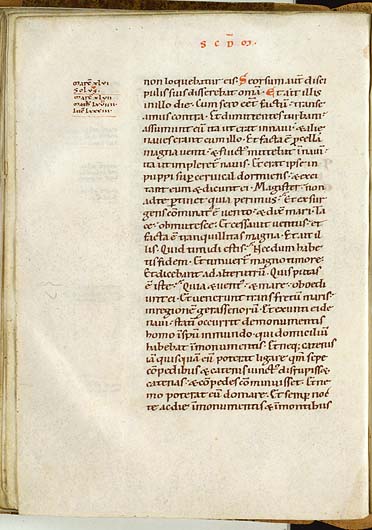 SCD̄M
non loquebatur eis. Seorsum aut̄ disci
pulis suis disserebat om̄a. Et ait illis
in illo die. Cum sero eēt factū. Transe
amus contra. Et dimittentes turbam
assumunt eū ita ut erat in navi. & alię
naves erant cum illo. Et facta ē procella
magna venti & fluct᷒ mittebat in navī
ita ut impleret᷒ navis. Et erat ipse in
puppi sup̄ cervical dormiens. & exci
tant eum & dicunt ei. Magister non
ad te pertinet quia perimus. Et exsur
gens cōminat᷒ ē vento. & dix̄ mari. Ta
ce obmutesce. Et cessavit ventus. et
facta ē tranquillitas magna. Et ait il
lis. Quid timidi estis. Necdum habe
tis fidem. Et timuer̄t magno timore.
Et dicebant ad alterutrū. Quis putas
ē iste. Quia & vent᷒ & mare oboedi
unt ei. Et venerunt trans fretū maris
in regionē gerasenorū. Et exeunti ei de
navi. statī occurrit de monumentis
homo ī sp̄u inmundo. qui domiciliū
habebat in monumentis. Et neq; catenis
iā quisquā eū poterat ligare. qm̄ sepe
cōpedibus & catenis vinct᷒ disrupiss&
catenas. & cōpedes cōminuisset. Et ne
mo poterat eū domare. Et semp̄ noc
te ac die in monumentis & in montibus